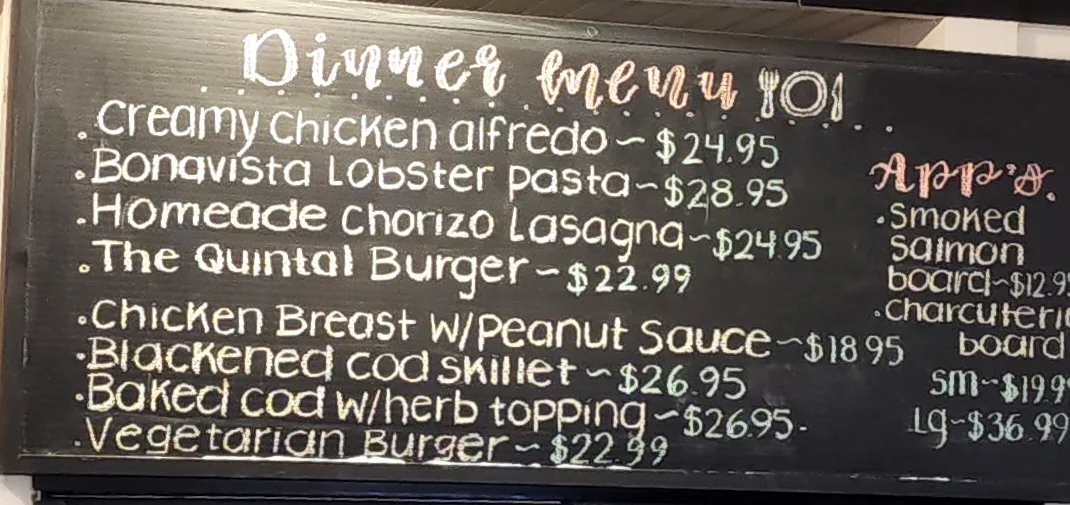 Dinner menu
.Creamy Chicken alfredo~$24.95
.Bonavista Lobster pasta~$28.95
.Homeade Chorizo Lasagna~$24.95
.The Quintal Burger~$22.99
.Chicken Breast w/Peanut Sauce~$18 95
.Blackened cod skillet~$26.95
.Baked cod w/herb topping~$26.95.
.Vegetarian Burger~$22.99
App's.
.Smoked
Salmon
board~$12.95
.charcuterie
board
sm~$19.9
Lg~$36.99